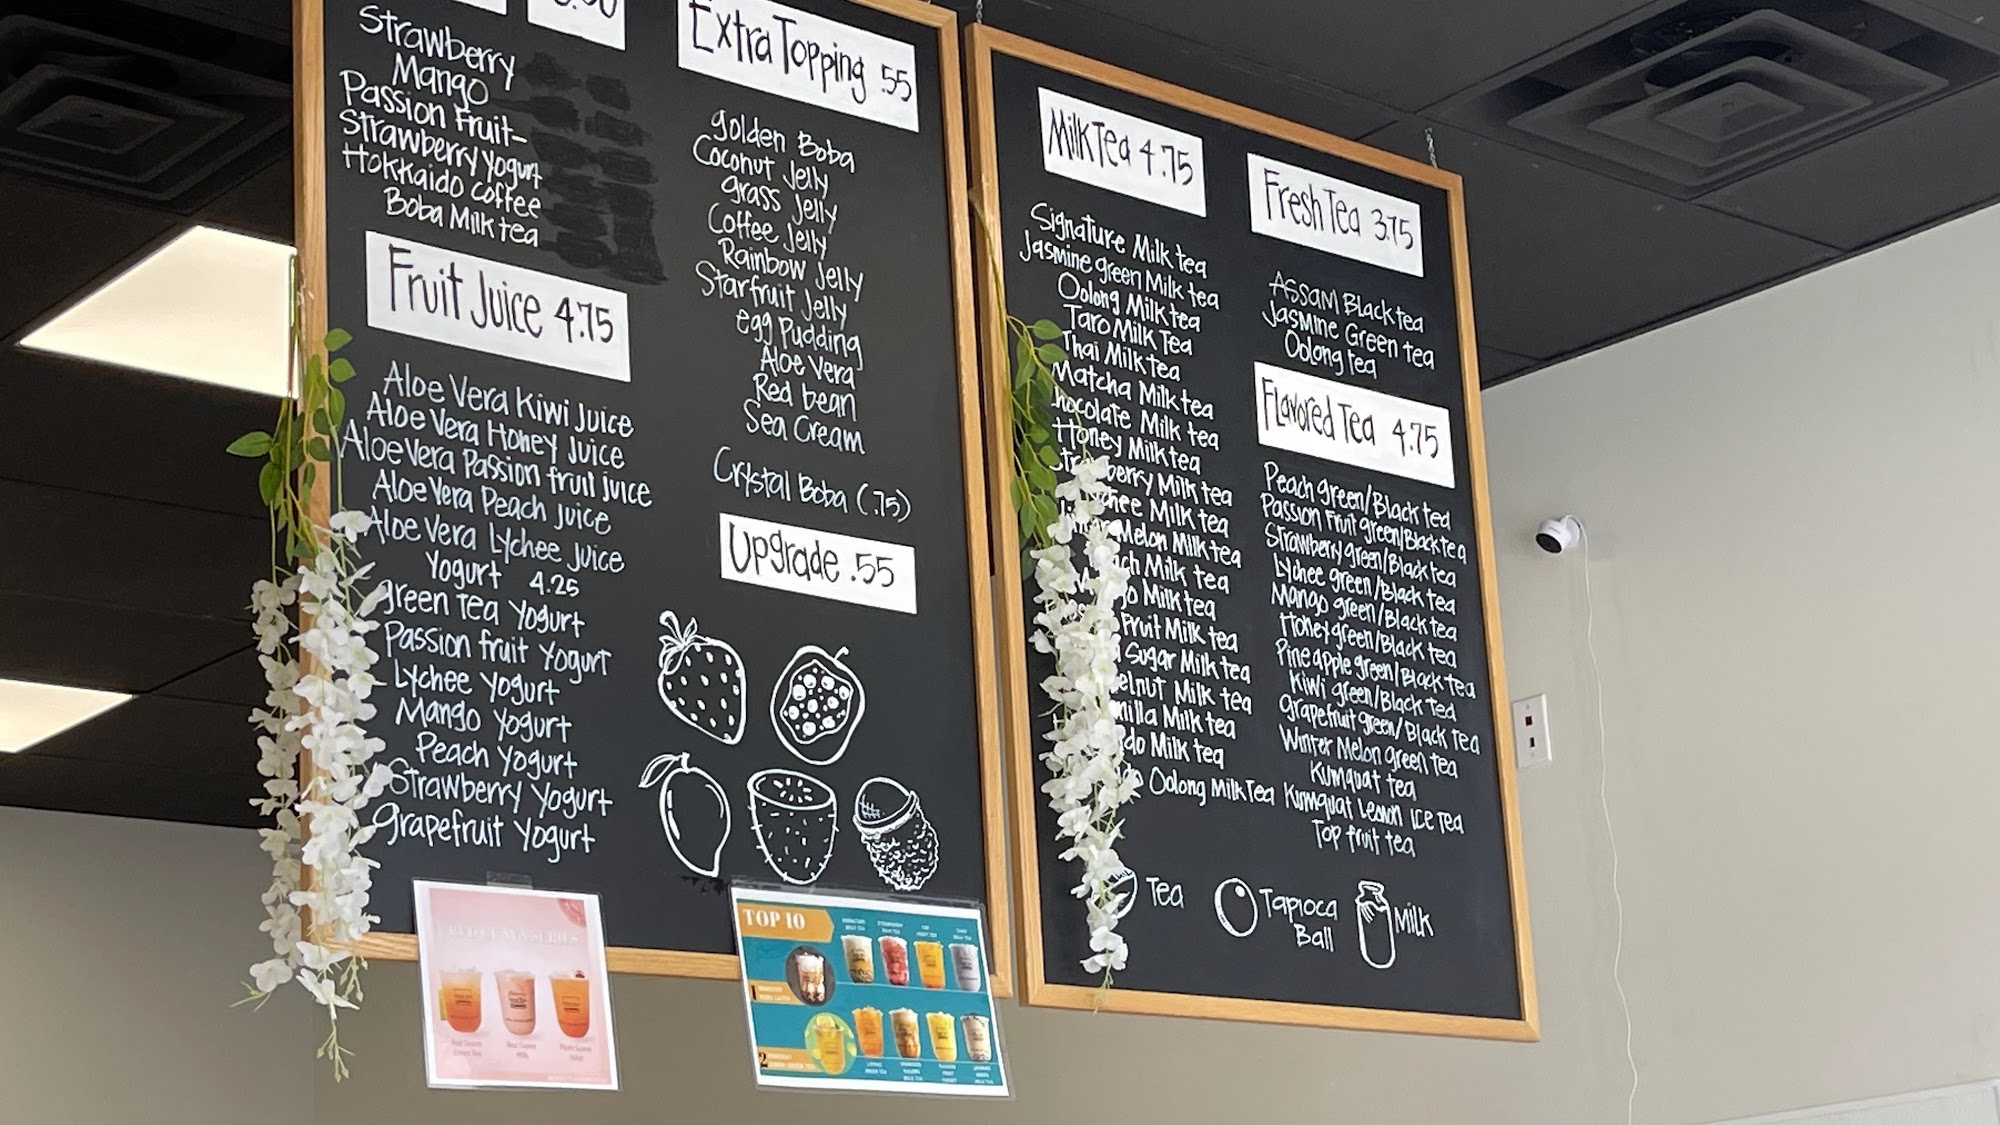 Strawberry
Mango
Passion Fruit-
Strawberry Yogurt
Hokkaido coffee
Boba Milk tea
Fruit Juice 4.75
Aloe Vera Kiwi Juice
Aloe Vera Honey Juice
Aloe Vera Passion fruit juice
Aloe Vera Peach Juice
Aloe Vera Lychee Juice
Yogurt 4.25
green Tea Yogurt
Passion fruit Yogurt
Lychee Yogurt
Mango Yogurt
Peach Yogurt
Strawberry Yogurt
grapefruit Yogurt
Extra Topping .55
golden Boba
Coconut Jelly
grass Jelly
Coffee Jelly
Rainbow Jelly
Starfruit Jelly
egg Pudding
Aloe Vera
Red bean
Sea Cream
Crystal Boba (.75)
Upgrade .55
TOP 10
1
2
Milk Tea 4.75
Signature Milk tea
Jasmine green Milk tea
Oolong Milk tea
Taro Milk Tea
Thai Milk tea
Matcha Milk tea
Milk tea
Honey Milk tea
Milk tea
Milk Tea
Melon Milk tea
Milk tea
Milk tea
Fruit Milk tea
Sugar Milk tea
Milk tea
Milk tea
Milk tea
Oolong Milk Tea
Fresh Tea 3.75
Assam Black tea
Jasmine Green tea
Oolong tea
Flavored Tea 4.75
Peach green/Black tea
Passion Fruit green/Black tea
Strawberry green/Black tea
Lychee green/Black tea
Mango green/Black tea
Honey green/Black tea
Pineapple green/Black tea
Kiwi green/Black tea
Grapefruit green/Black tea
Winter Melon green tea
Kumquat tea
Kumquat Lemon Ice Tea
Top fruit tea
Tea
Tapioca
Ball
Milk